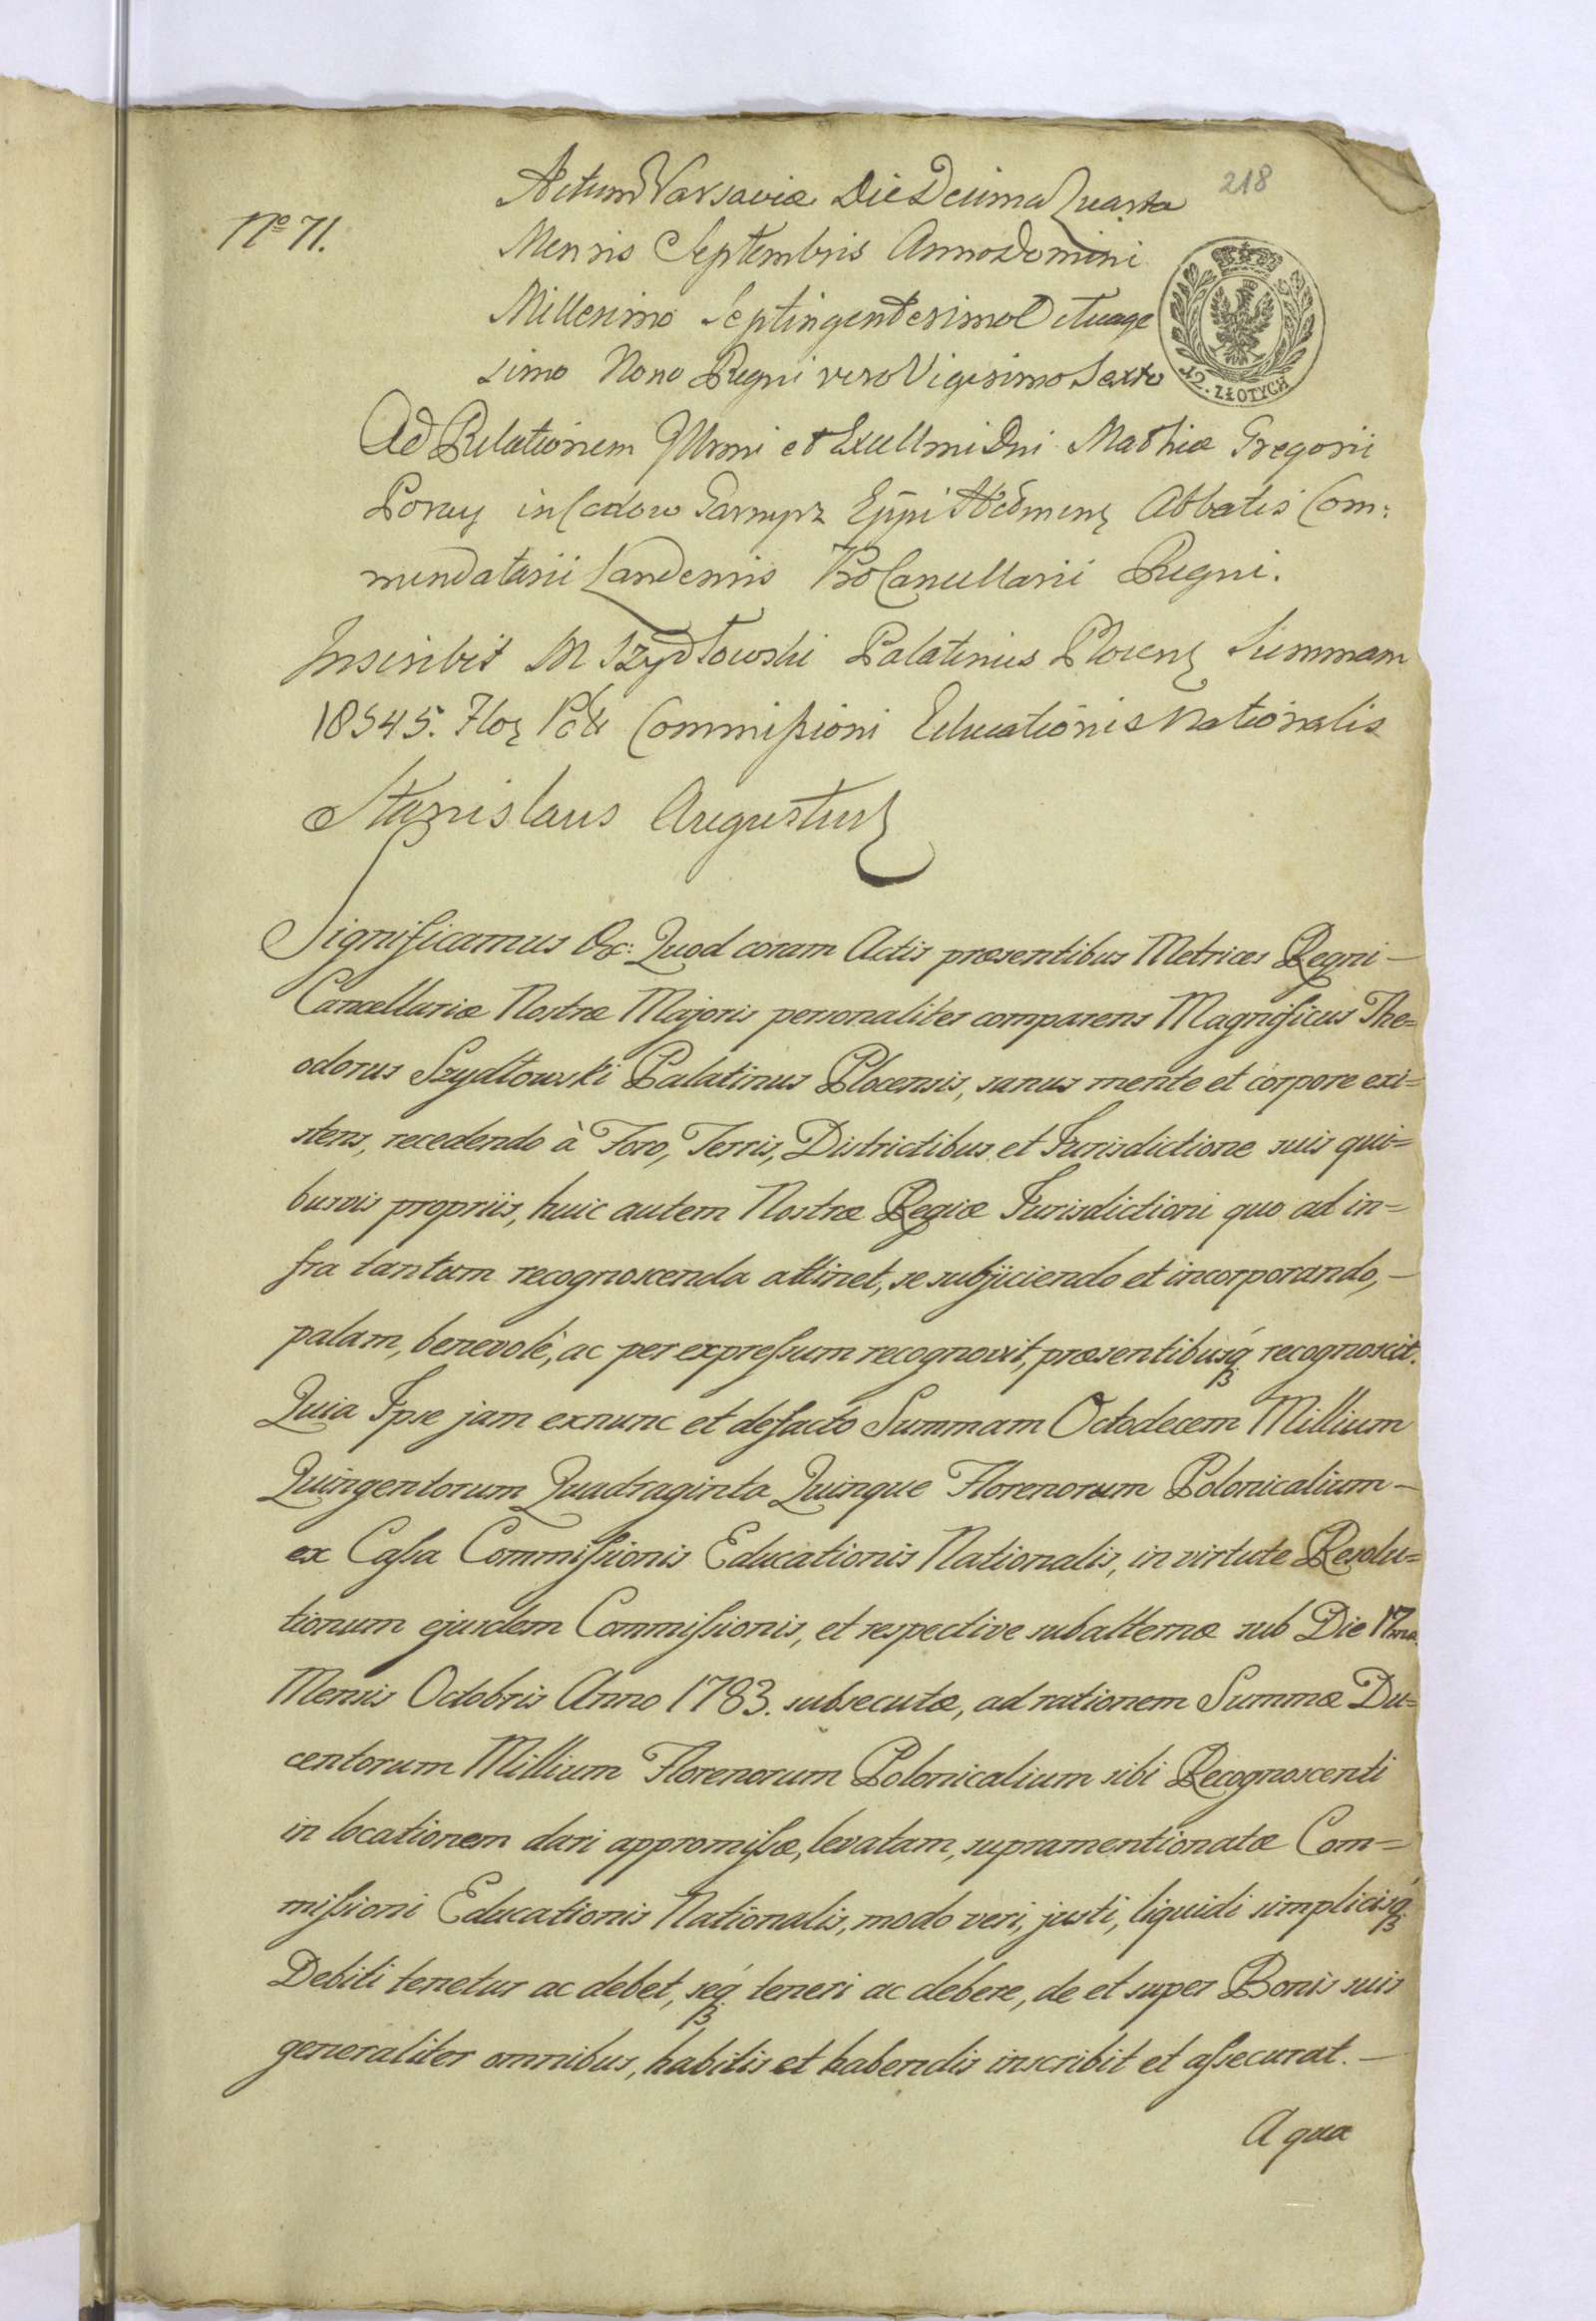 218
Nro 71.
Actum Varsaviæ Die Decima Quarta
Mensis Septembris Anno Domini
Millesimo Septingentesimo Octuage
simo Nono Regni vero Vigesimo Sexto
12. ZŁOTYCH
Ad Relationem Illrmi et Excellmi Dni Mathiæ Gregorii
Poray in Garnysz Eppi Abbatis Com:
mendatarii Landensis ProCancellarii Regni.
Inscribit M Szydłowski Palatinus Plocens Summam
18545. Flor Pol Commißioni Educationis Nationalis
Stanislaus Augustus
Significamus &c: Quod coram Actis præsentibus Metrices Regni –
Cancellariæ Nostræ Majoris personaliter comparens Magnificus The=
odorus Szydłowski Palatinus Plocensis, sanus mente et corpore exi=
stens, recedendo à Foro, Terris, Districtibus et Jurisdictione suis qui=
busvis propriis, huic autem Nostræ Regiæ Jurisdictioni quo ad in=
fra tantum recognoscenda attinet, se subjiciendo et incorporando, –
palam, benevolè, ac per expreſsum recognovit, præsentibusq́ꝫ recognoscit.
Quia Ipse jam exnunc et defacto Summam Octodecem Millium
Quingentorum Quadraginta Quinque Florenorum Polonicalium –
ex Caſsa Commiſsionis Educationis Nationalis, in virtute Resolu=
tionum ejusdem Commiſsionis, et respective subalternæ sub Die 17ma
Mensis Octobris Anno 1783. subsecutæ, ad rationem Summæ Du=
centorum Millium Florenorum Polonicalium sibi Recognoscenti
in locationem dari appromiſsæ, levatam, supramentionatæ Com=
miſsioni Educationis Nationalis, modo veri, justi, liquidi simplicisq́ꝫ
Debiti tenetur ac debet, seq́ꝫ teneri ac debere, de et super Bonis suis
generaliter omnibus, habitis et habendis inscribit et aſsecurat. –
A qua